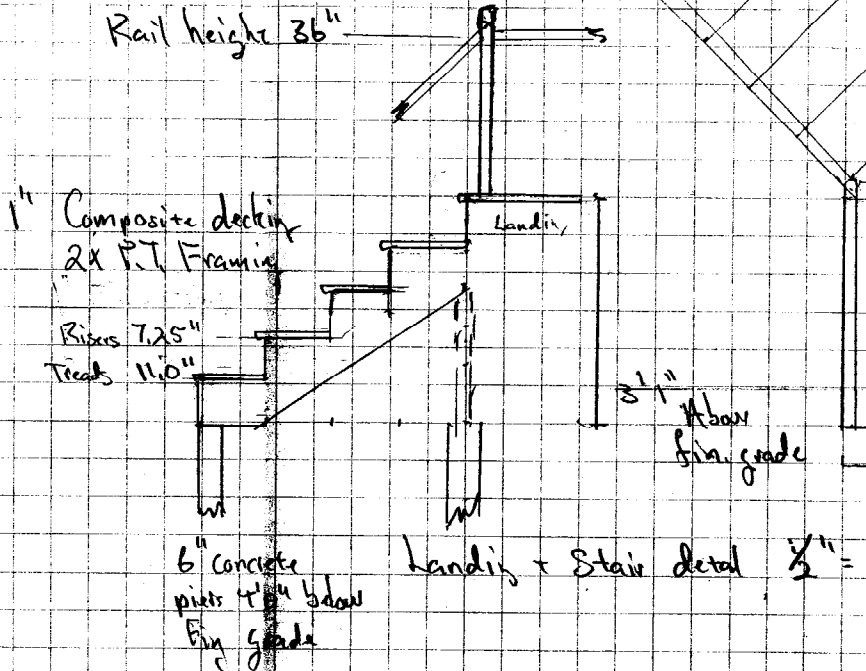 Rail height 36"
1" Composite deckin
2X P.T. Framin
Landin
Risers 7.25"
Treads 11.0"
3'1"
Above
fin. grade
6" concrete
piers 4'0" below
Fin grade
Landin + Stair detal 1/2" =